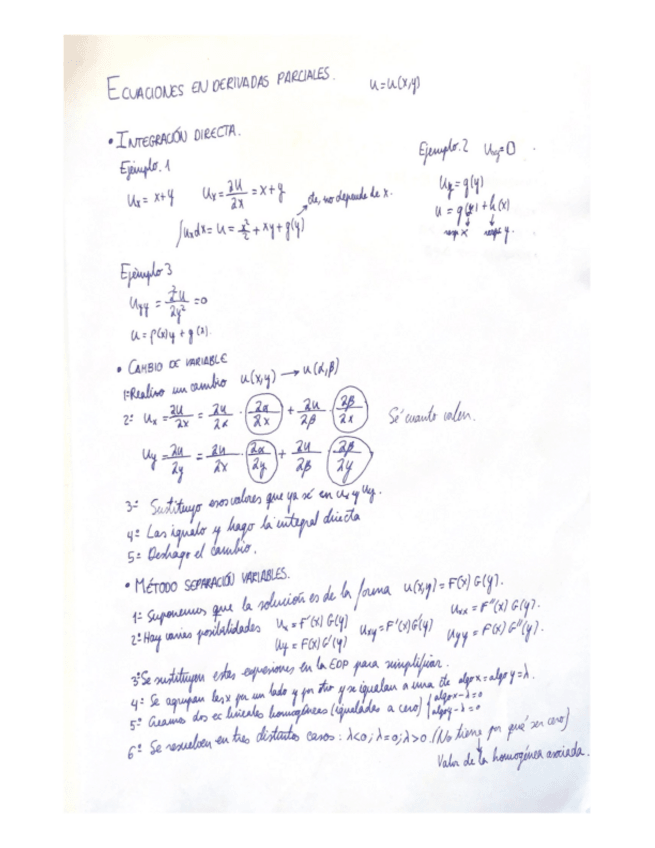 ECUACIONES EN DERIVADAS PARCIALES. u=u(x,y)
• INTEGRACIÓN DIRECTA.
Ejemplo.1
Ux = x+y Ux = ∂u/∂x = x+y
cte, no depende de x.
∫Uxdx = u = x²/2 + xy + g(y)
Ejemplo.2 Uxy=0
Uy = g(y)
u = g(y) + h(x)
resp x resp y.
Ejemplo 3
Uyy = ∂²u/∂y² = 0
u = f(x)y + g(x).
• CAMBIO DE VARIABLE
1º Realizo un cambio u(x,y) → u(α,β)
2º Ux = ∂u/∂x = ∂u/∂α · ∂α/∂x + ∂u/∂β · ∂β/∂x Sé cuanto valen.
Uy = ∂u/∂y = ∂u/∂α · ∂α/∂y + ∂u/∂β · ∂β/∂y
3º Sustituyo esos valores que ya sé en ux y uy.
4º Las igualo y hago la integral directa
5º Deshago el cambio.
• MÉTODO SEPARACIÓN VARIABLES.
1º Suponemos que la solución es de la forma u(x,y) = F(x) G(y).
2º Hay varias posibilidades Ux = F'(x) G(y) Uxy = F'(x)G'(y) Uxx = F''(x) G(y).
Uy = F(x) G'(y) Uyy = F(x) G''(y).
3º Se sustituyen estas expresiones en la EDP para simplificar.
4º Se agrupan las x por un lado y por otro y se igualan a una cte algo x = algo y = λ.
5º Creamos dos ec lineales homogéneas (igualadas a cero) { algo x - λ = 0
algo y - λ = 0
6º Se resuelven en tres distintos casos: λ<0; λ=0; λ>0. (No tiene por qué ser cero)
Valor de la homogénea asociada.